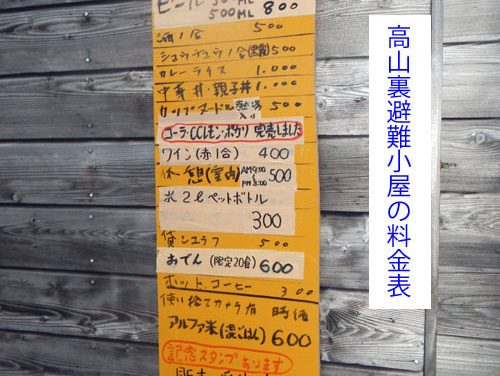 ビール 500ML 800
酒1合 500
シュラフュラ1合(宮翔)500
カレーライス 1.000
中華丼・親子丼 1.000
カップヌードル 熱湯入り 500
コーラ・CCレモン・ポカリ 完売しました
ワイン(赤1合) 400
休憩(室内) AM9:00 PM3:00 500
水2ℓペットボトル
300
貸シュラフ 500
おでん(限定20食)600
ホットコーヒー 300
使い捨てカメラ有 時価
アルファ米(混ごはん)600
記念スタンプあります
高山裏避難小屋の料金表